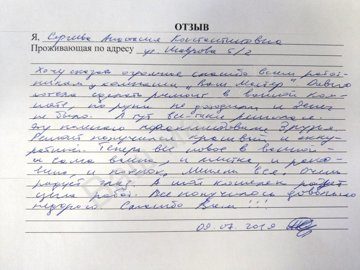 ОТЗЫВ
Я, Сергеева Анастасия Константиновна
Проживающая по адресу ул. Шаврова 5/2
Хочу сказать огромное спасибо всем работ-
никам компании „Ваш Мастер". Давно
хотела сделать ремонт в ванной ком-
нате, но руки не доходили и денег
не было. А тут все-таки решилась.
Эту компанию
Ремонт получился красивый, акку-
ратный. Теперь все новое в ванной -
и сама ванна, и плитка, и рако-
вина, и потолок, мылом все. Очень
радует глаз. А мой кошелек радует
цена работ. Все получилось довольно
недорого. Спасибо Вам!!!
09.07.2018